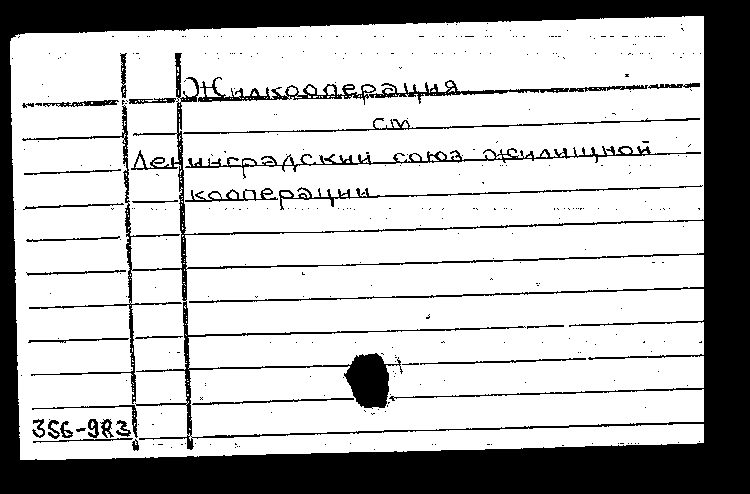 Жилкооперация
см
Ленинградский союз жилищной
кооперации
356-983